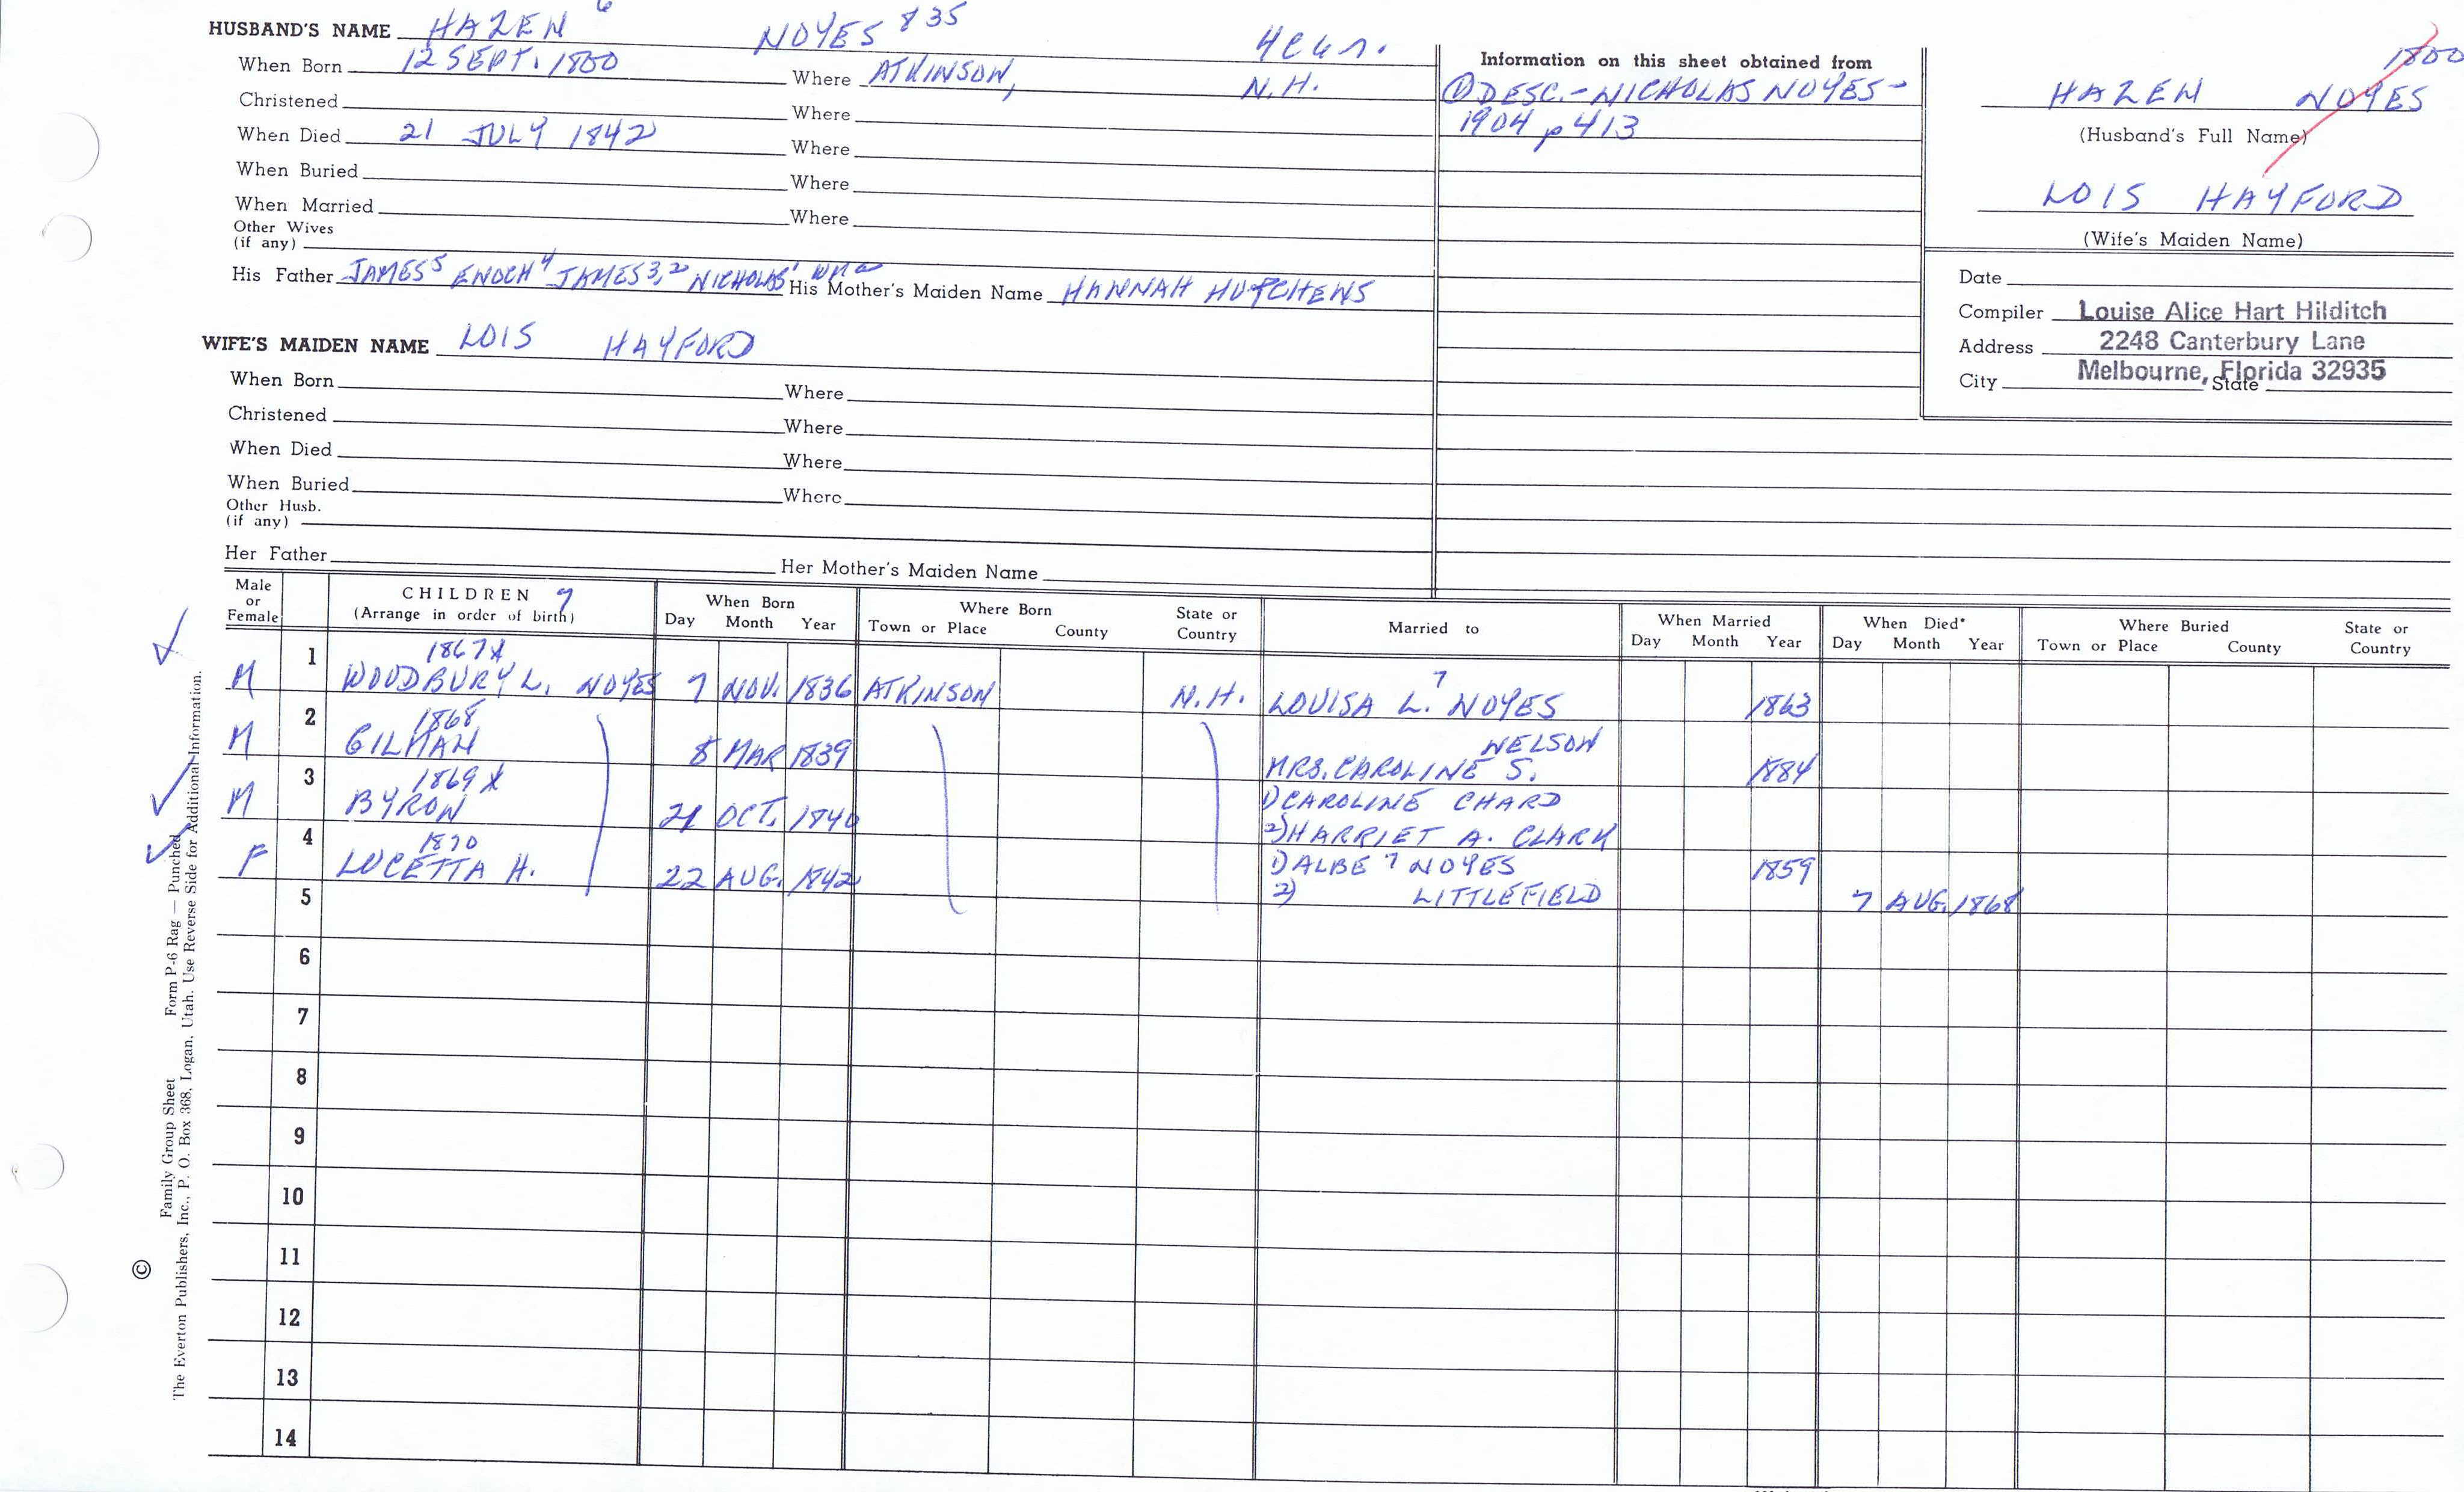 HUSBAND'S NAME HAZEN 6 NOYES 835
When Born 12 SEPT. 1800 Where ATKINSON, N.H.
Christened Where
When Died 21 JULY 1842 Where
When Buried Where
When Married Where
Other Wives
(if any)
His Father JAMES5 ENOCH4 JAMES3,2 NICHOLAS1 His Mother's Maiden Name HANNAH HUTCHENS
WIFE'S MAIDEN NAME LOIS HAYFORD
When Born Where
Christened Where
When Died Where
When Buried Where
Other Husb.
(if any)
Her Father Her Mother's Maiden Name
Information on this sheet obtained from
① DESC.-NICHOLAS NOYES-
1904 p413
1800
HAZEN NOYES
(Husband's Full Name)
LOIS HAYFORD
(Wife's Maiden Name)
Date
Compiler Louise Alice Hart Hilditch
Address 2248 Canterbury Lane
City Melbourne, Florida 32935 State
Male or Female CHILDREN 7 (Arrange in order of birth) When Born Day Month Year Where Born Town or Place County State or Country Married to When Married Day Month Year When Died* Day Month Year Where Buried Town or Place County State or Country
1 1867 x
M WOODBURY L. NOYES 7 NOV. 1836 ATKINSON N.H. LOUISA L.7 NOYES 1863
2 1868 NELSON
M GILMAN 8 MAR 1839 MRS. CAROLINE S. 1884
3 1869 x 1) CAROLINE CHARD
M BYRON 21 OCT. 1840 2) HARRIET A. CLARK
4 1870 1) ALBE7 NOYES 1859
F LUCETTA H. 22 AUG. 1842 2) LITTLEFIELD 7 AUG. 1868
5
6
7
8
9
10
11
12
13
14
© Family Group Sheet Form P-6 Rag — Punched
The Everton Publishers, Inc., P. O. Box 368, Logan, Utah. Use Reverse Side for Additional Information.